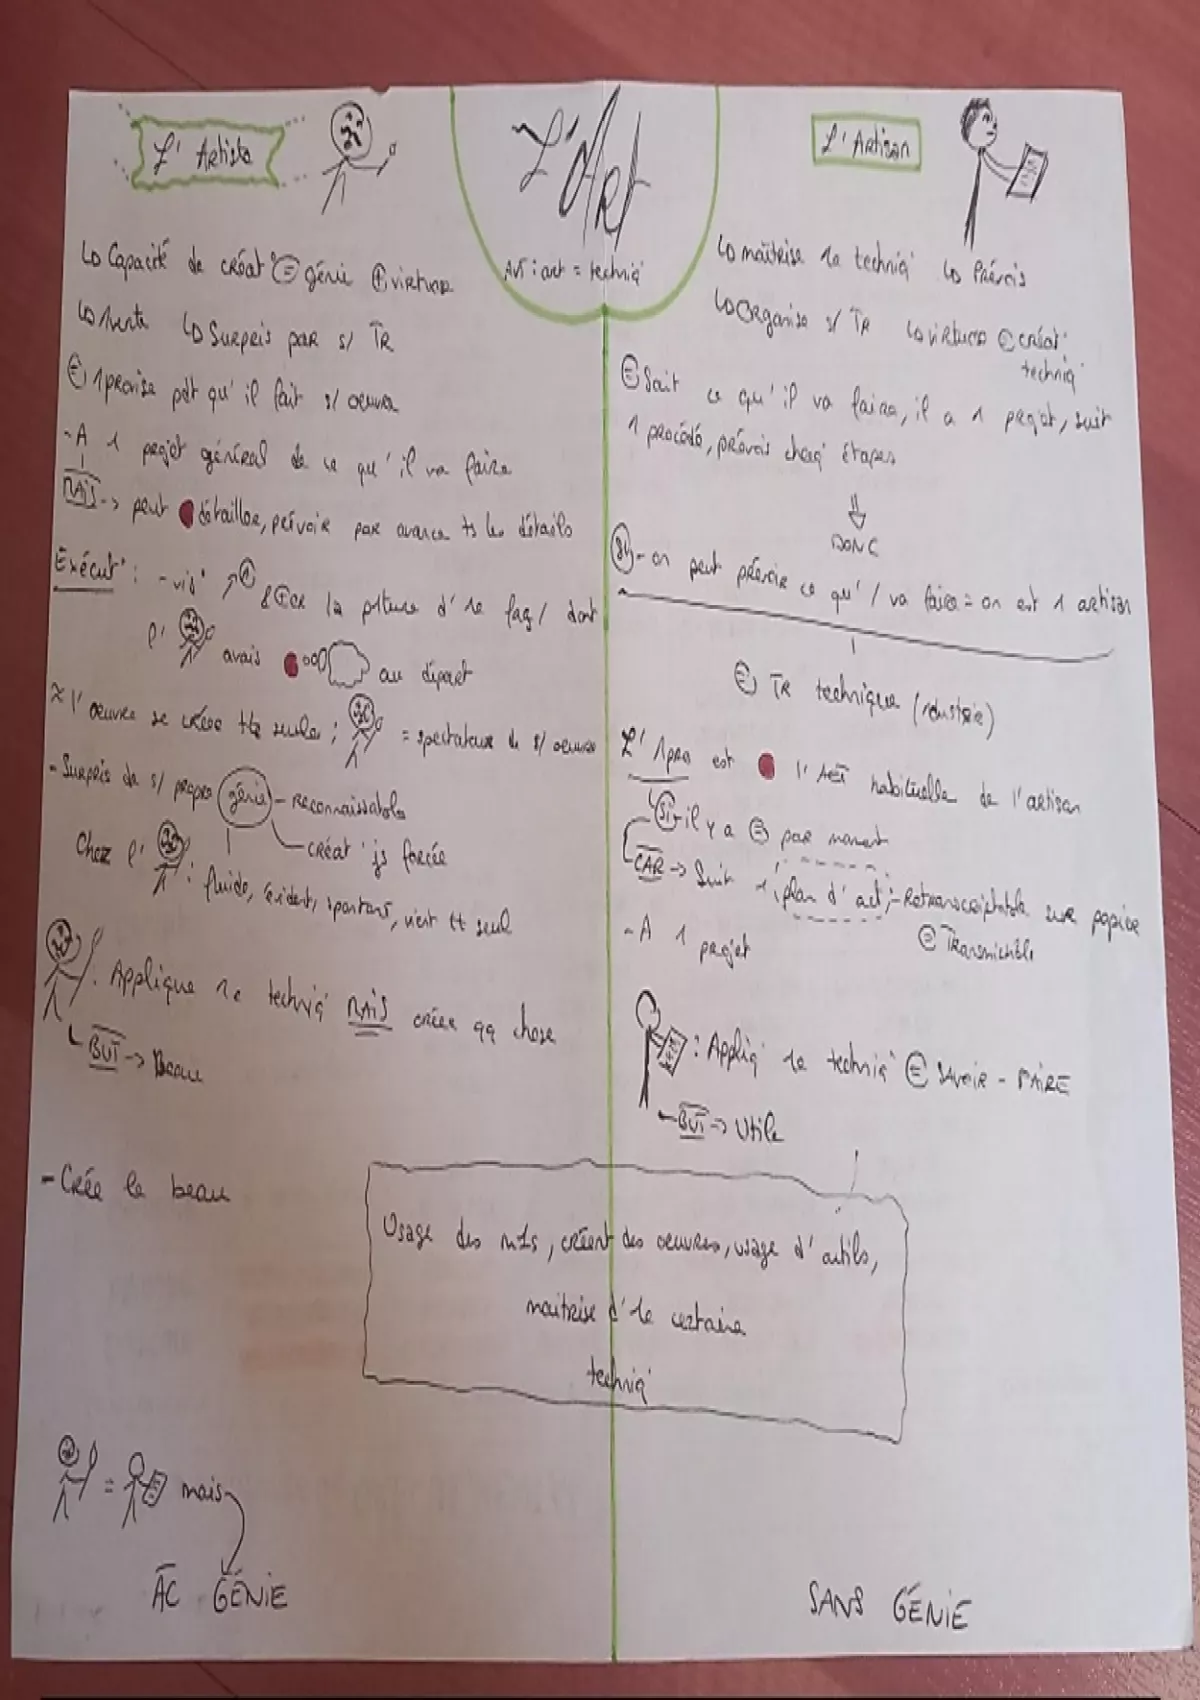 L'Art
Avt : art = techniq'
L'Artiste
↳ Capacité de créat° = génie + virtuos
↳ Surpris par s/ TR
1provise pdt qu'il fait s/ oeuvre
- A 1 projet général de ce qu'il va faire
MAIS -> peut détailler, prévoir par avance ts les détails
Exécut° : - vis° 1e faç/ dont
l' avais au départ
≈ l'oeuvre se crée tte seule ; = spectateur de s/ oeuvre
- Surpris de s/ propre génie - Reconnaissable
- créat° js forcée
Chez l' : fluide, évident, spontané, vient tt seul
: Applique 1e techniq' MAIS créer qq chose
↳ BUT -> Beau
- Crée le beau
= mais
AC GÉNIE
L'Artisan
↳ maîtrise 1e techniq' ↳ Précis
↳ Organise s/ TR ↳ virtuos créat°
techniq'
Sait ce qu'il va faire, il a 1 projet, suit
1 procédé, prévois chaq' étapes
⇓
DONC
Si - on peut prévoir ce qu'/ va faire = on est 1 artisan
TR technique (industrie)
L' est l' habituelle de l'artisan
↳ Si - il y a par moment
CAR -> Suit 1 plan d'act° - Retranscriptible sur papier
= Transmissible
- A 1 projet
: Appliq' 1e techniq' = SAVOIR - FAIRE
↳ BUT -> Utile
Usage des mts, créent des oeuvres, usage d'outils,
maitrise d'1e certaine
techniq'
SANS GÉNIE